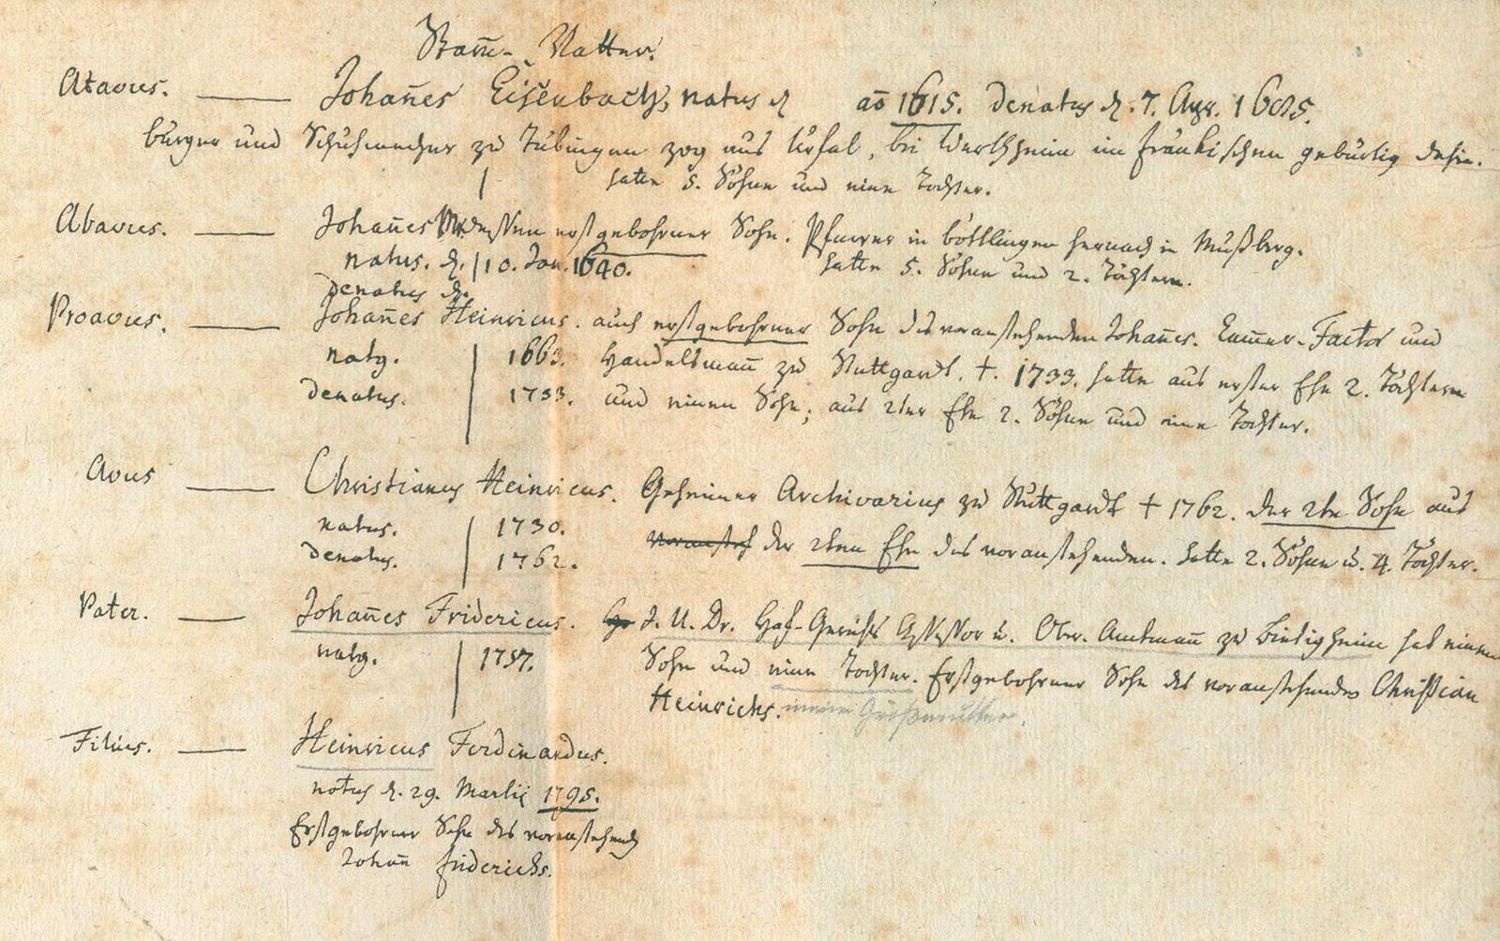 Stam̄-Vatter.
Atavus. — Johan̄es Eisenbach, natus d. aō 1615. denatus d. 7. Aug. 1685.
burger und Schuhmacher zu Tübingen zog aus Urfal, bei Wertheim im fränkischen gebürtig dahin.
hatte 5. Söhne und eine Tochter.
Abavus. — Johan̄es dessen erstgebohrner Sohn. Pfarrer in böttlingen hernach in Mußberg.
natus. d. 10. Jan. 1640. hatte 5. Söhne und 2. Töchtern.
denatus d.
Proavus. — Johan̄es Heinricus. auch erstgebohrner Sohn des voranstehenden Johan̄es. Cam̄er-Factor und
natus. 1663. Handelsman̄ zu Stuttgardt. †. 1733. hatte aus erster Ehe 2. Töchtern
denatus. 1733. und einen Sohn; aus 2ter Ehe 2. Söhne und eine Tochter.
Avus — Christianus Heinricus. Geheimer Archivarius zu Stuttgardt † 1762. der 2te Sohn aus
natus. 1730. voransteh der 2ten Ehe des voranstehenden. hatte 2. Söhne u. 4. Töchter.
denatus. 1762.
Pater. — Johan̄es Fridericus. J. U. Dr. Hof-Gerichts Assessor u. Ober-Amtman̄ zu Bietigheim hat einen
natus. 1757. Sohn und eine Tochter. Erstgebohrner Sohn des voranstehenden Christian
Heinrichs. meine Großmutter.
Filius. — Heinricus Ferdinandus.
natus d. 29. Martii 1795.
Erstgebohrner Sohn des voranstehend
Johan̄ friderichs.